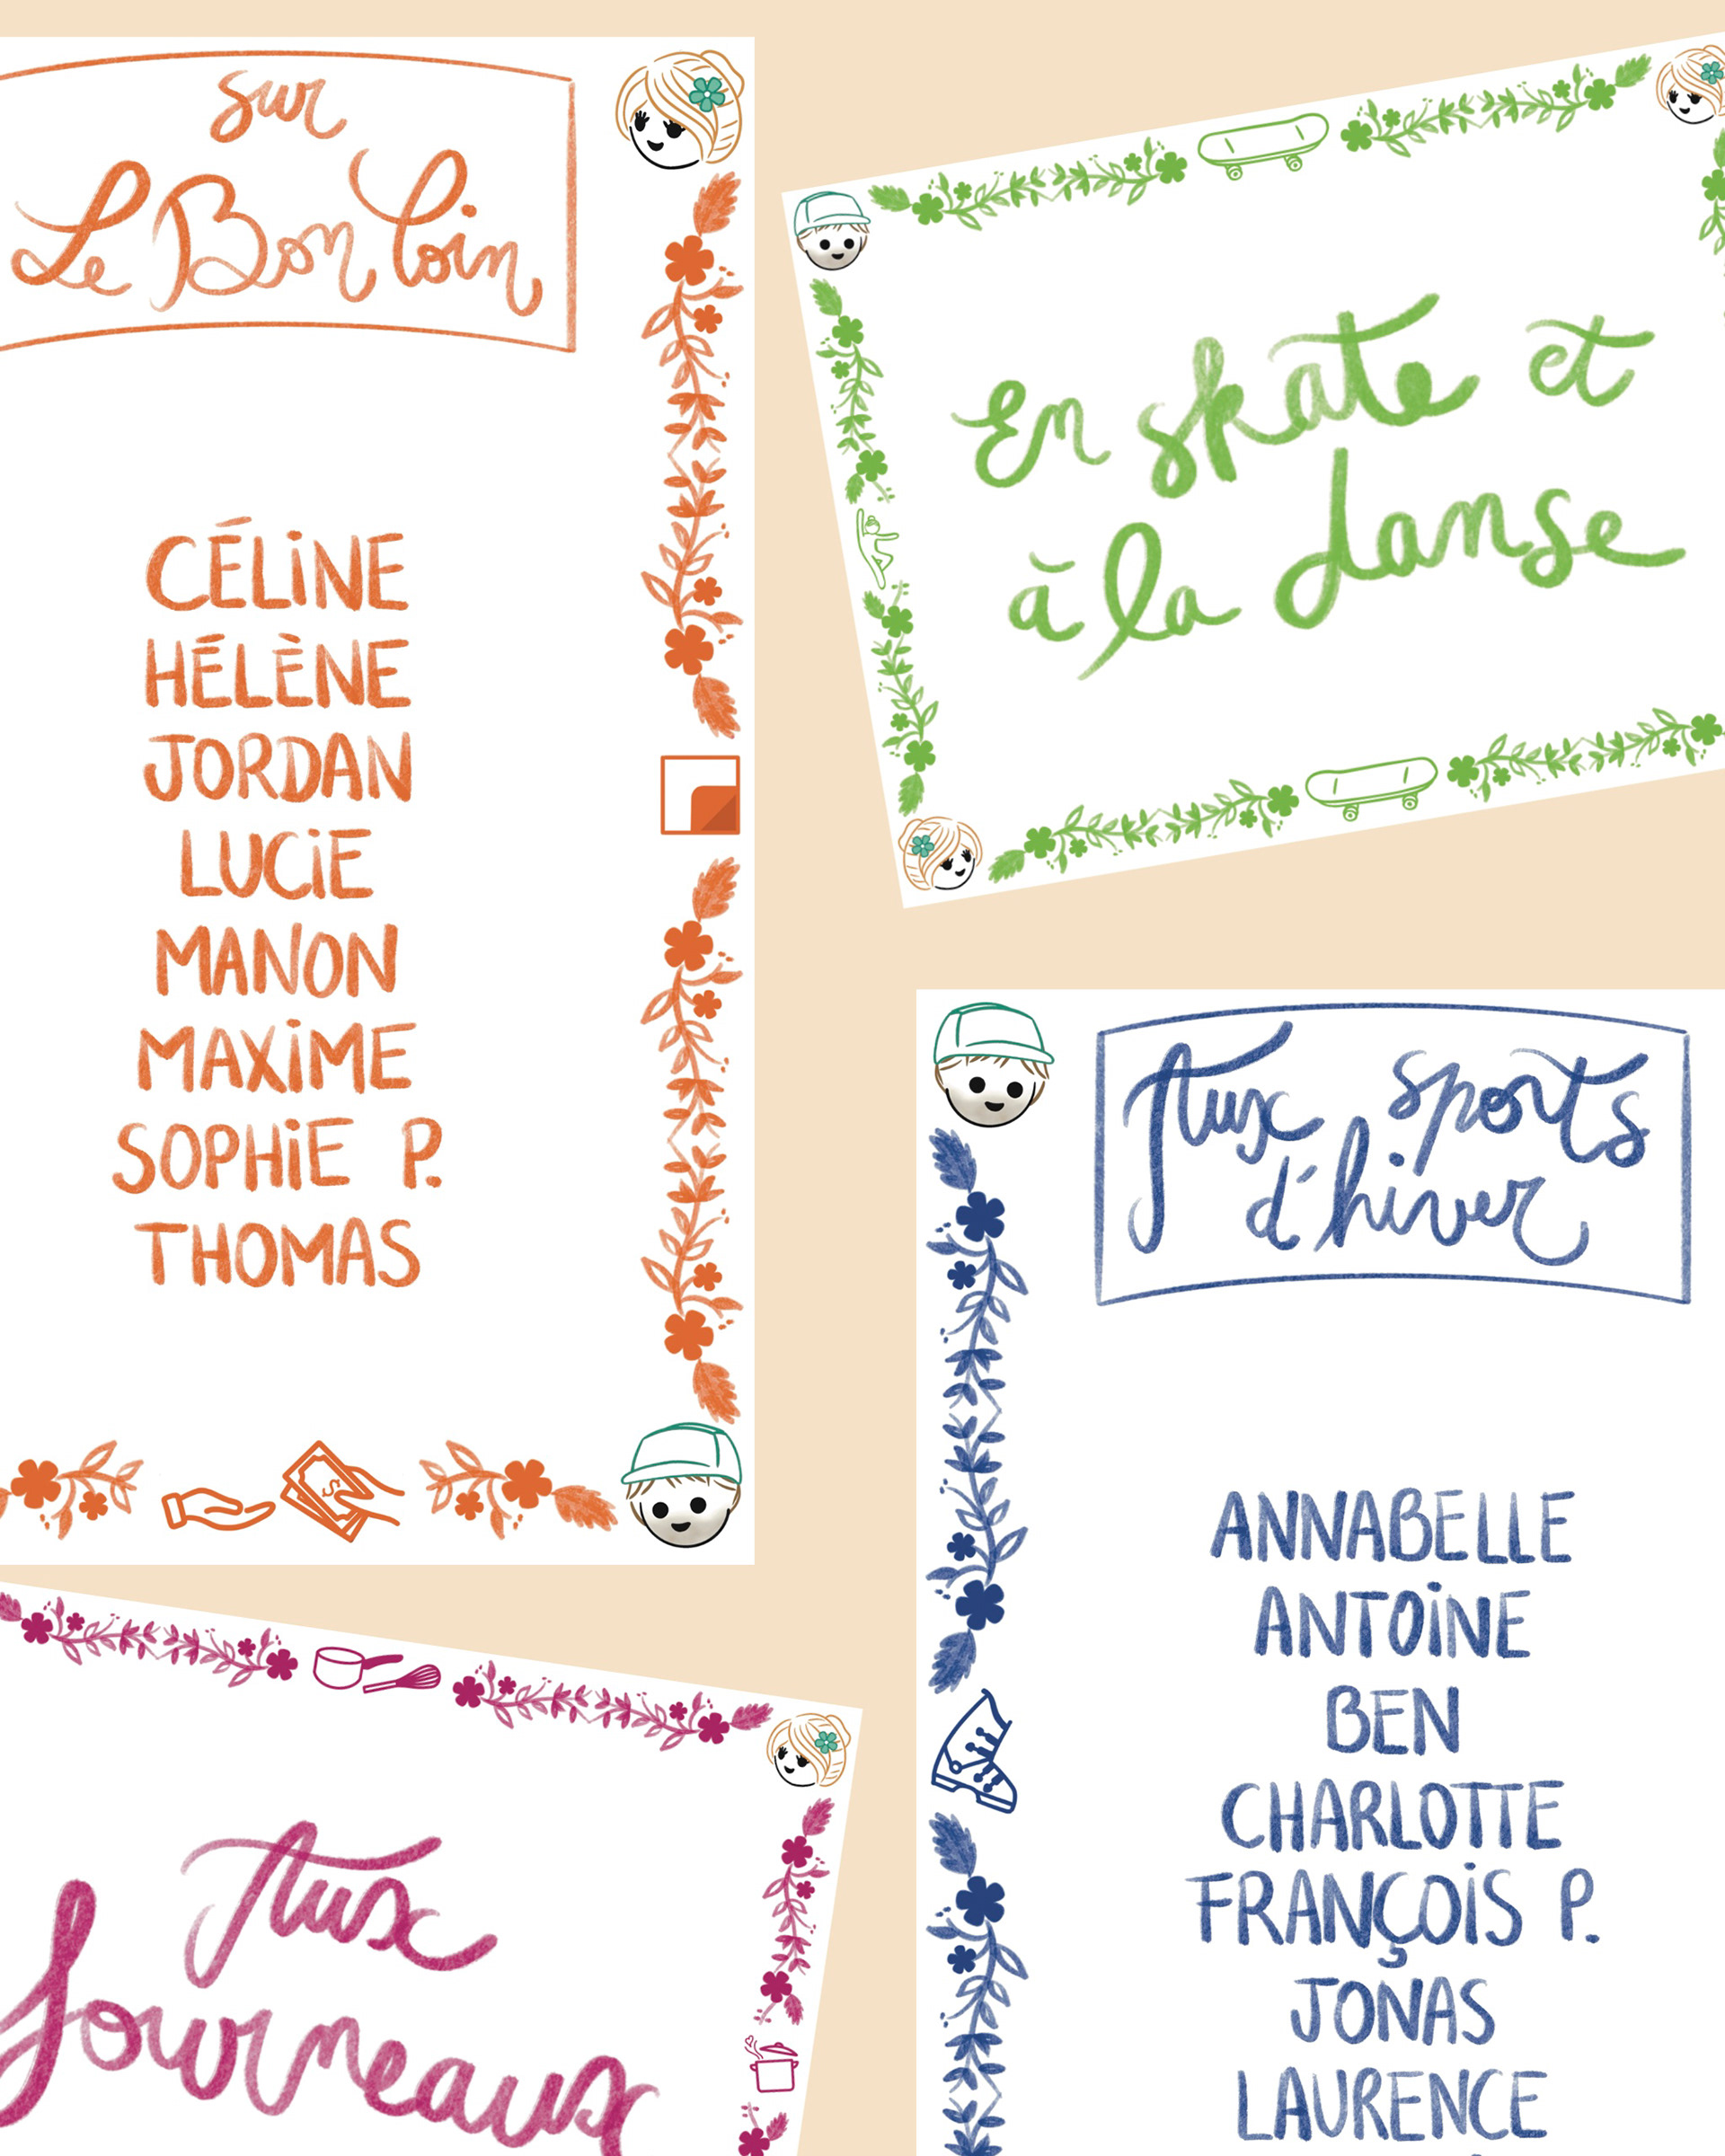 sur
Le Bon Coin
CÉLINE
HÉLÈNE
JORDAN
LUCIE
MANON
MAXIME
SOPHIE P.
THOMAS
En skate et
à la danse
Aux sports
d'hiver
ANNABELLE
ANTOINE
BEN
CHARLOTTE
FRANÇOIS P.
JONAS
LAURENCE
Aux
fourneaux